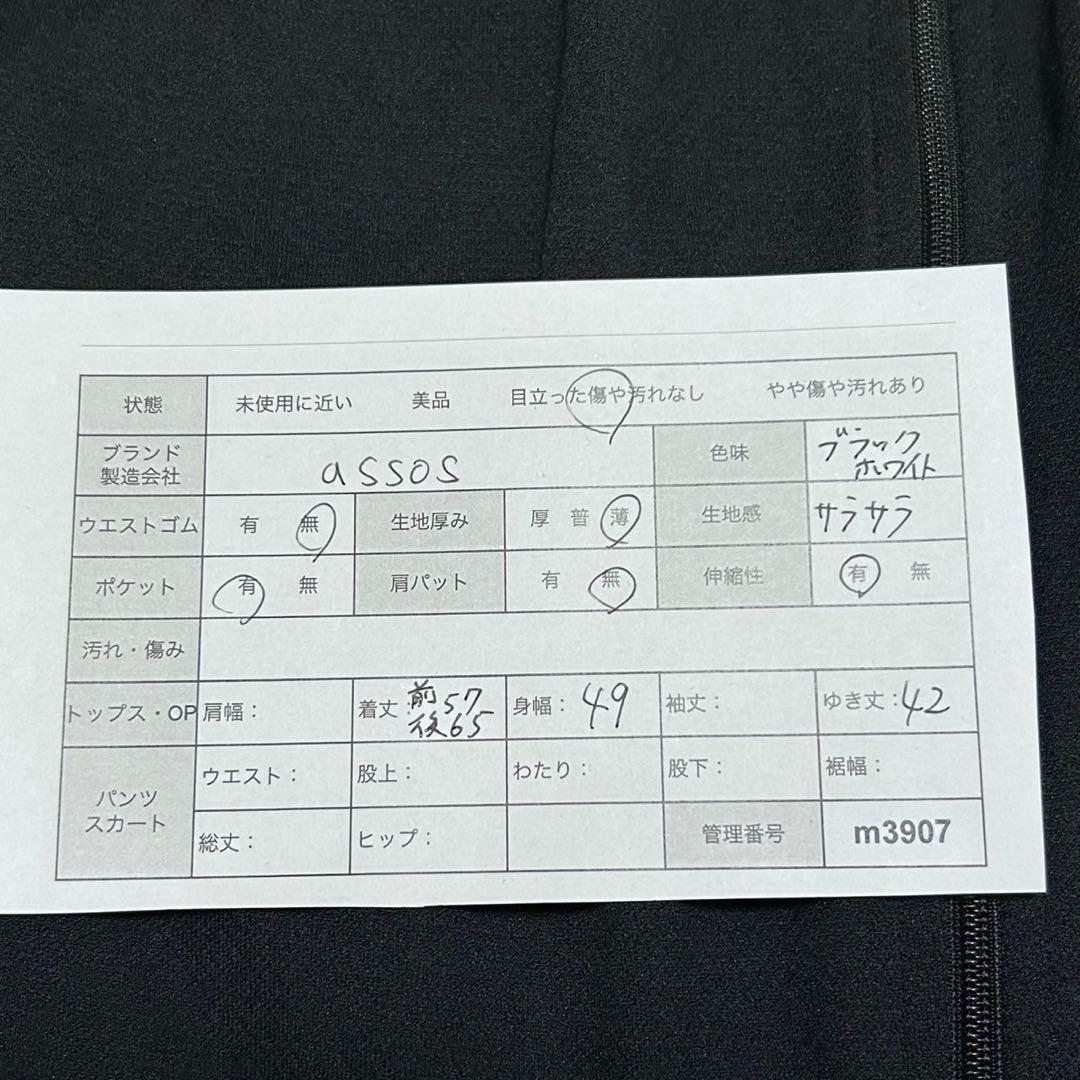 状態 未使用に近い 美品 目立った傷や汚れなし やや傷や汚れあり
ブランド
製造会社 assos 色味 ブラック
ホワイト
ウエストゴム 有 無 生地厚み 厚 普 薄 生地感 サラサラ
ポケット 有 無 肩パット 有 無 伸縮性 有 無
汚れ・傷み
トップス・OP 肩幅： 着丈： 前57
後65 身幅： 49 袖丈： ゆき丈：42
パンツ
スカート ウエスト： 股上： わたり： 股下： 裾幅：
総丈： ヒップ： 管理番号 m3907